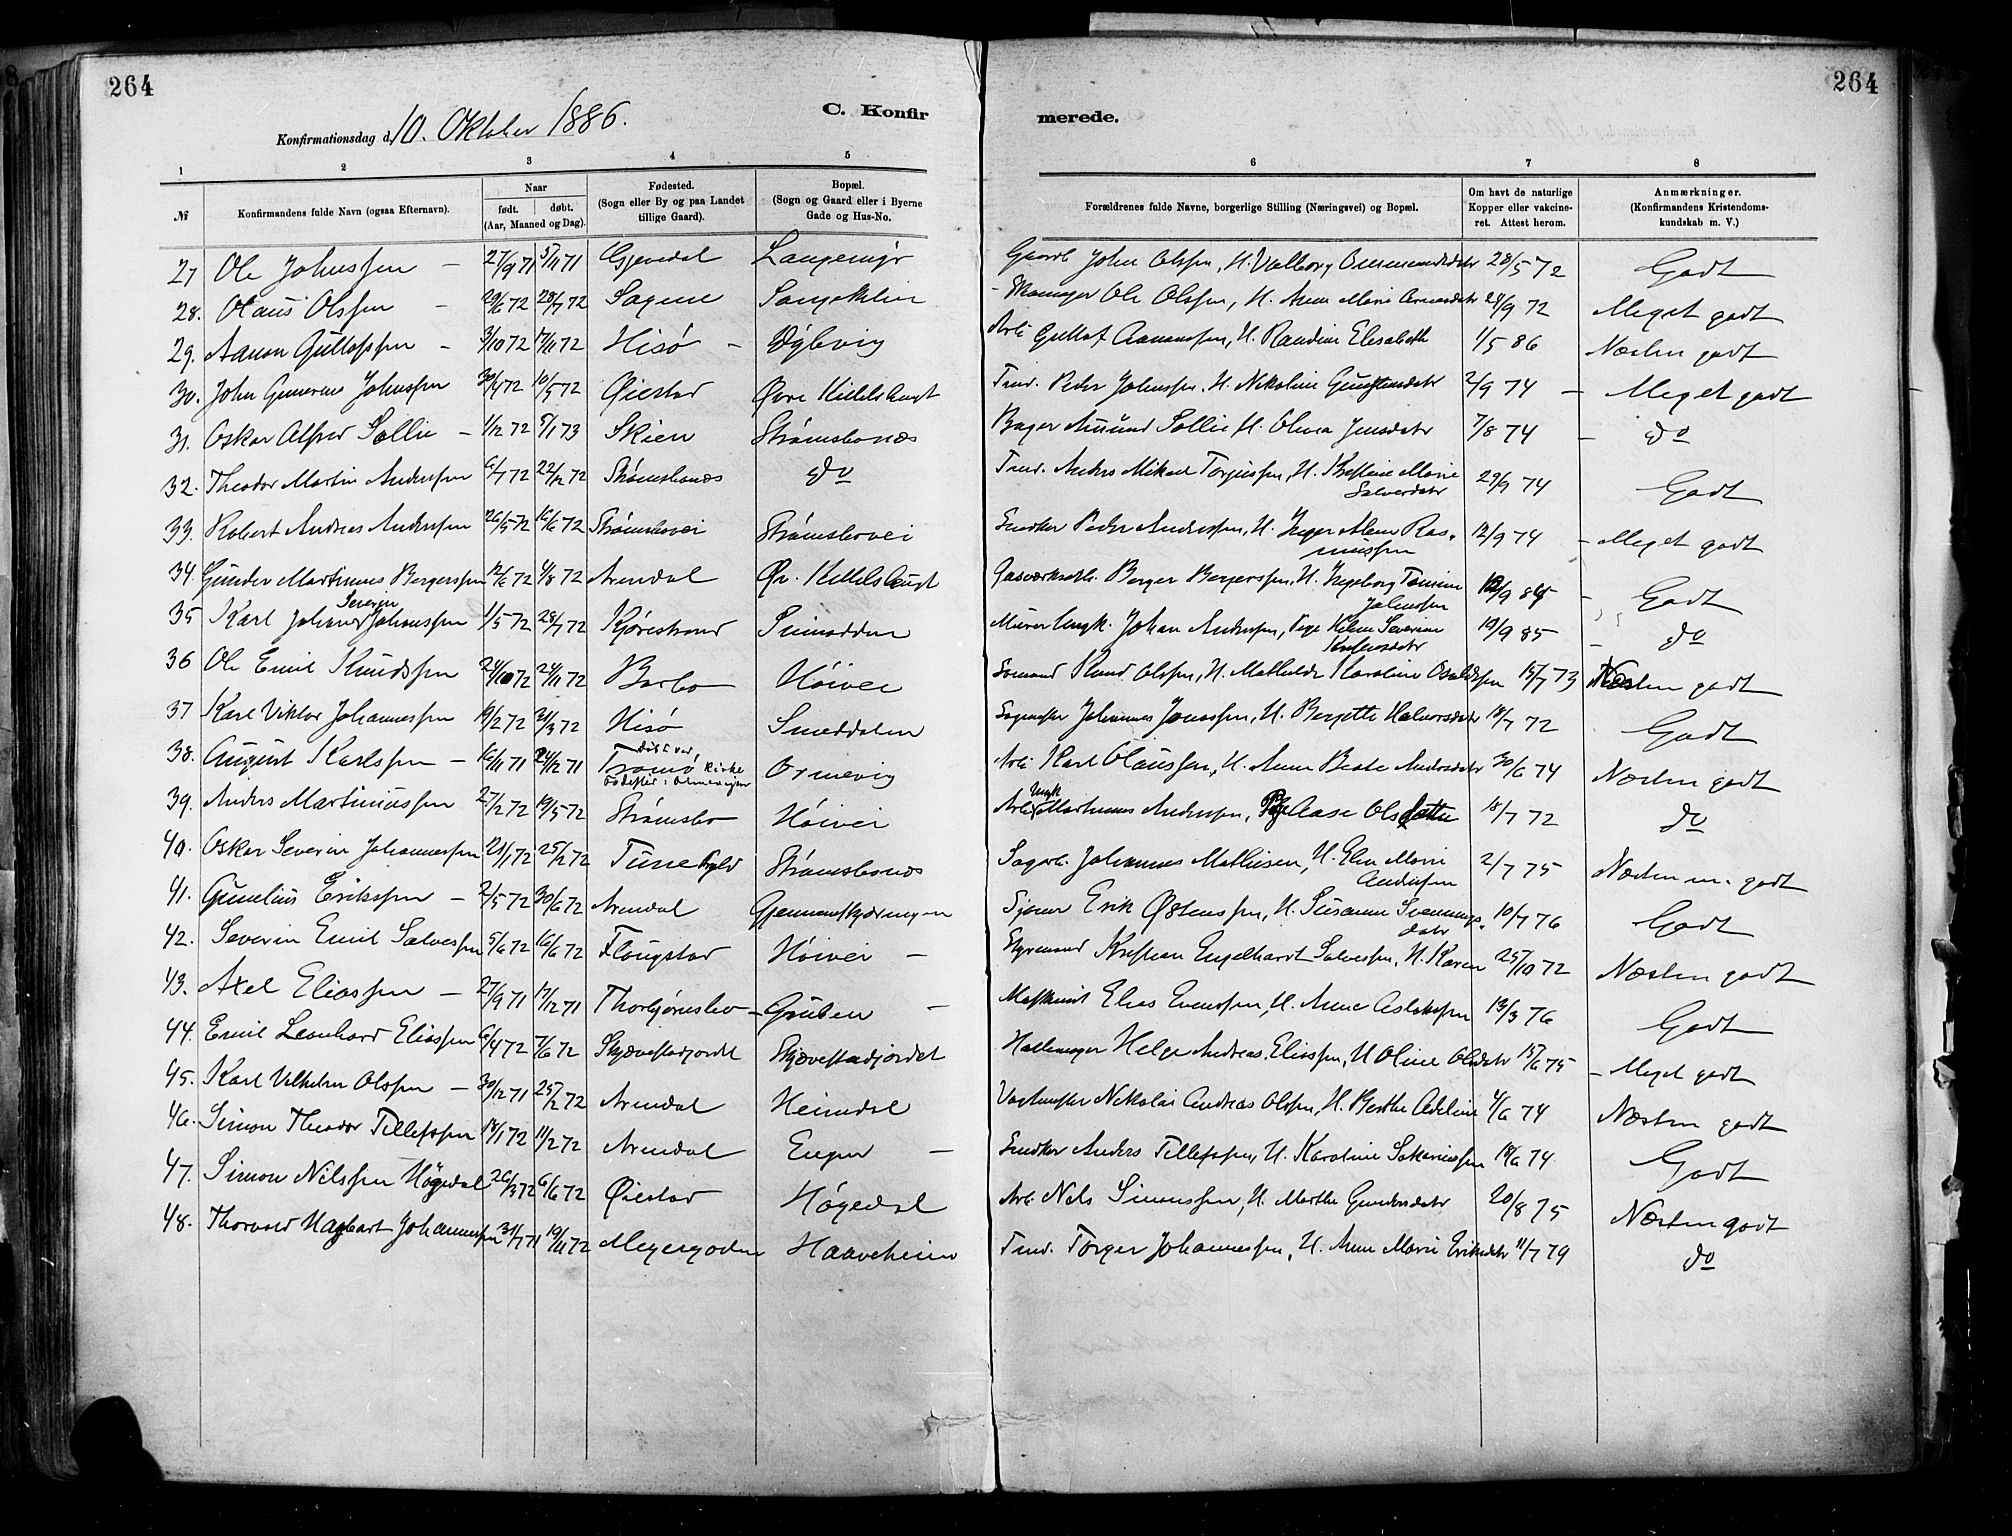 264
264
Konfirmationsdag d. 10. Oktober 1886.
C. Konfir
merede.
1 2 3 4 5 6 7 8
№ Konfirmandens fulde Navn (ogsaa Efternavn). Naar født. døbt. (Aar, Maaned og Dag). Fødested. (Sogn eller By og paa Landet tillige Gaard). Bopæl. (Sogn og Gaard eller i Byerne Gade og Hus-No. Forældrenes fulde Navne, borgerlige Stilling (Næringsvei) og Bopæl. Om havt de naturlige Kopper eller vakcineret. Attest herom. Anmærkninger. (Konfirmandens Kristendomskundskab m. V.)
27 Ole Johnssen – 27/9 71 5/11 71 Gjevedal Langemyr Gaardb. John Olssen, H. Valborg 28/5 72 Godt
28. Olaus Olssen – 29/6 72 28/7 72 Sagene Ole Olssen, H. Anne Marie 29/9 72 Meget godt
29. Aanon Gullofssen – 3/10 72 17/11 72 Hisø – Vigbvig Arb. Gullof Aanonssen, H. Randine Elisabeth 1/5 86 Næsten godt
30. John Gunerius Johnssen 30/4 72 10/5 72 Øiestad Øvre Kittelsbugt Tmd. Peder Johnssen, H. Nikoline 2/9 74 – Meget godt
31. Oskar Alfred Sollie – 1/12 72 5/1 73 Skien Strømsbonæs Bager Amund Sollie H. Olava Jensdatr 7/8 74 – do
32. Theodor Martin Anderssen 6/7 72 22/12 72 Strømsbonæs do Tmd. Anders Mikael Torjussen, H. Kristine Marie Salvesdatr 29/9 74 Godt
33. Robert Andreas Anderssen 26/5 72 16/6 72 Strømsbovei Strømsbovei Snedker Peder Anderssen, H. Inger Alene Rasmussen 12/9 74 – Meget godt
34. Gunder Martinius Bergerssen 12/6 72 4/8 72 Arendal Øv. Kittelsbugt Gasværksarb. Berger Bergerssen, H. Ingeborg Tomine Johnssen 12/9 84 – Godt
35 Karl Johan Severin Johanssen 1/5 72 28/7 72 Kjørestrand Murer Ungk. Johan Anderssen, Pige Helene Severine 19/9 85 – do
36 Ole Emil Knudssen 24/10 72 24/11 72 Barbo Høivei Sømand Knud Olssen, H. Mathilde Karoline Osuldssen 15/7 73 Næsten godt
37 Karl Viktor Johannessen 19/2 72 31/3 72 Hisø Smeddalen Sagmester Johannes Jonassen, H. Bergitte Halvorsdatr 18/7 72 Godt
38. August Karlssen – 16/11 71 24/12 71 Tromø kirke Ormevig Arb. Karl Olaussen, H. Anne Beate Andersdatr 30/6 74 Næsten godt
39. Anders Martiniussen 27/2 72 19/5 72 Strømsbo Høivei Arb. Ungk Martinius Anderssen, Pige Aase Olsdatter 18/7 72 do
40. Oskar Severin Johannessen 21/1 72 25/2 72 Tune Strømsbonæs Sagarb. Johannes Mathisen, H. Elen Marie Anderssen 2/7 75 Næsten m. godt
41. Gunelius Erikssen – 2/5 72 30/6 72 Arendal Gjennemskjæringen Sjømd Erik Østenssen, H. Susanne Svenningsdatr 10/7 76 Godt
42. Severin Emil Salvessen 5/6 72 16/6 72 Flougstad Høivei – Styrmand Kristian Engelhardt Salvessen, H. Karen 25/10 72 Næsten godt
43. Axel Eliassen – 27/9 71 17/12 71 Thorbjørnsbo – Gruben – Maskinist Elias Evenssen, H. Anne Aslakssen 13/3 76 Godt
44. Emil Leonhard Eliassen 6/4 72 7/6 72 Skjævestadjordet Skjævestadjordet Helge Andreas Eliassen, H. Oline Olsdatr 15/6 75 – Meget godt
45. Karl Vilhelm Olssen – 30/12 71 25/2 72 Arendal Heimdal Vagtmester Nikolai Andreas Olssen, H. Berthe Adeline 4/6 74 Næsten godt
46. Simon Theodor Tellefssen 18/1 72 11/2 72 Arendal Engen – Snedker Anders Tellefssen, H. Karoline Sakariassen 18/6 74 Godt
47. Simon Nilssen Høgedal 26/3 72 6/6 72 Øiestad Høgedal Arb. Nils Simonssen, H. Marthe Gundersdatr 20/8 75 Næsten godt
48. Thorvald Hagbart Johannessen 31/7 71 19/11 72 Meyergaden Haaveheien Tmd. Torger Johannessen, H. Anne Marie Eriksdatr 11/7 79 do